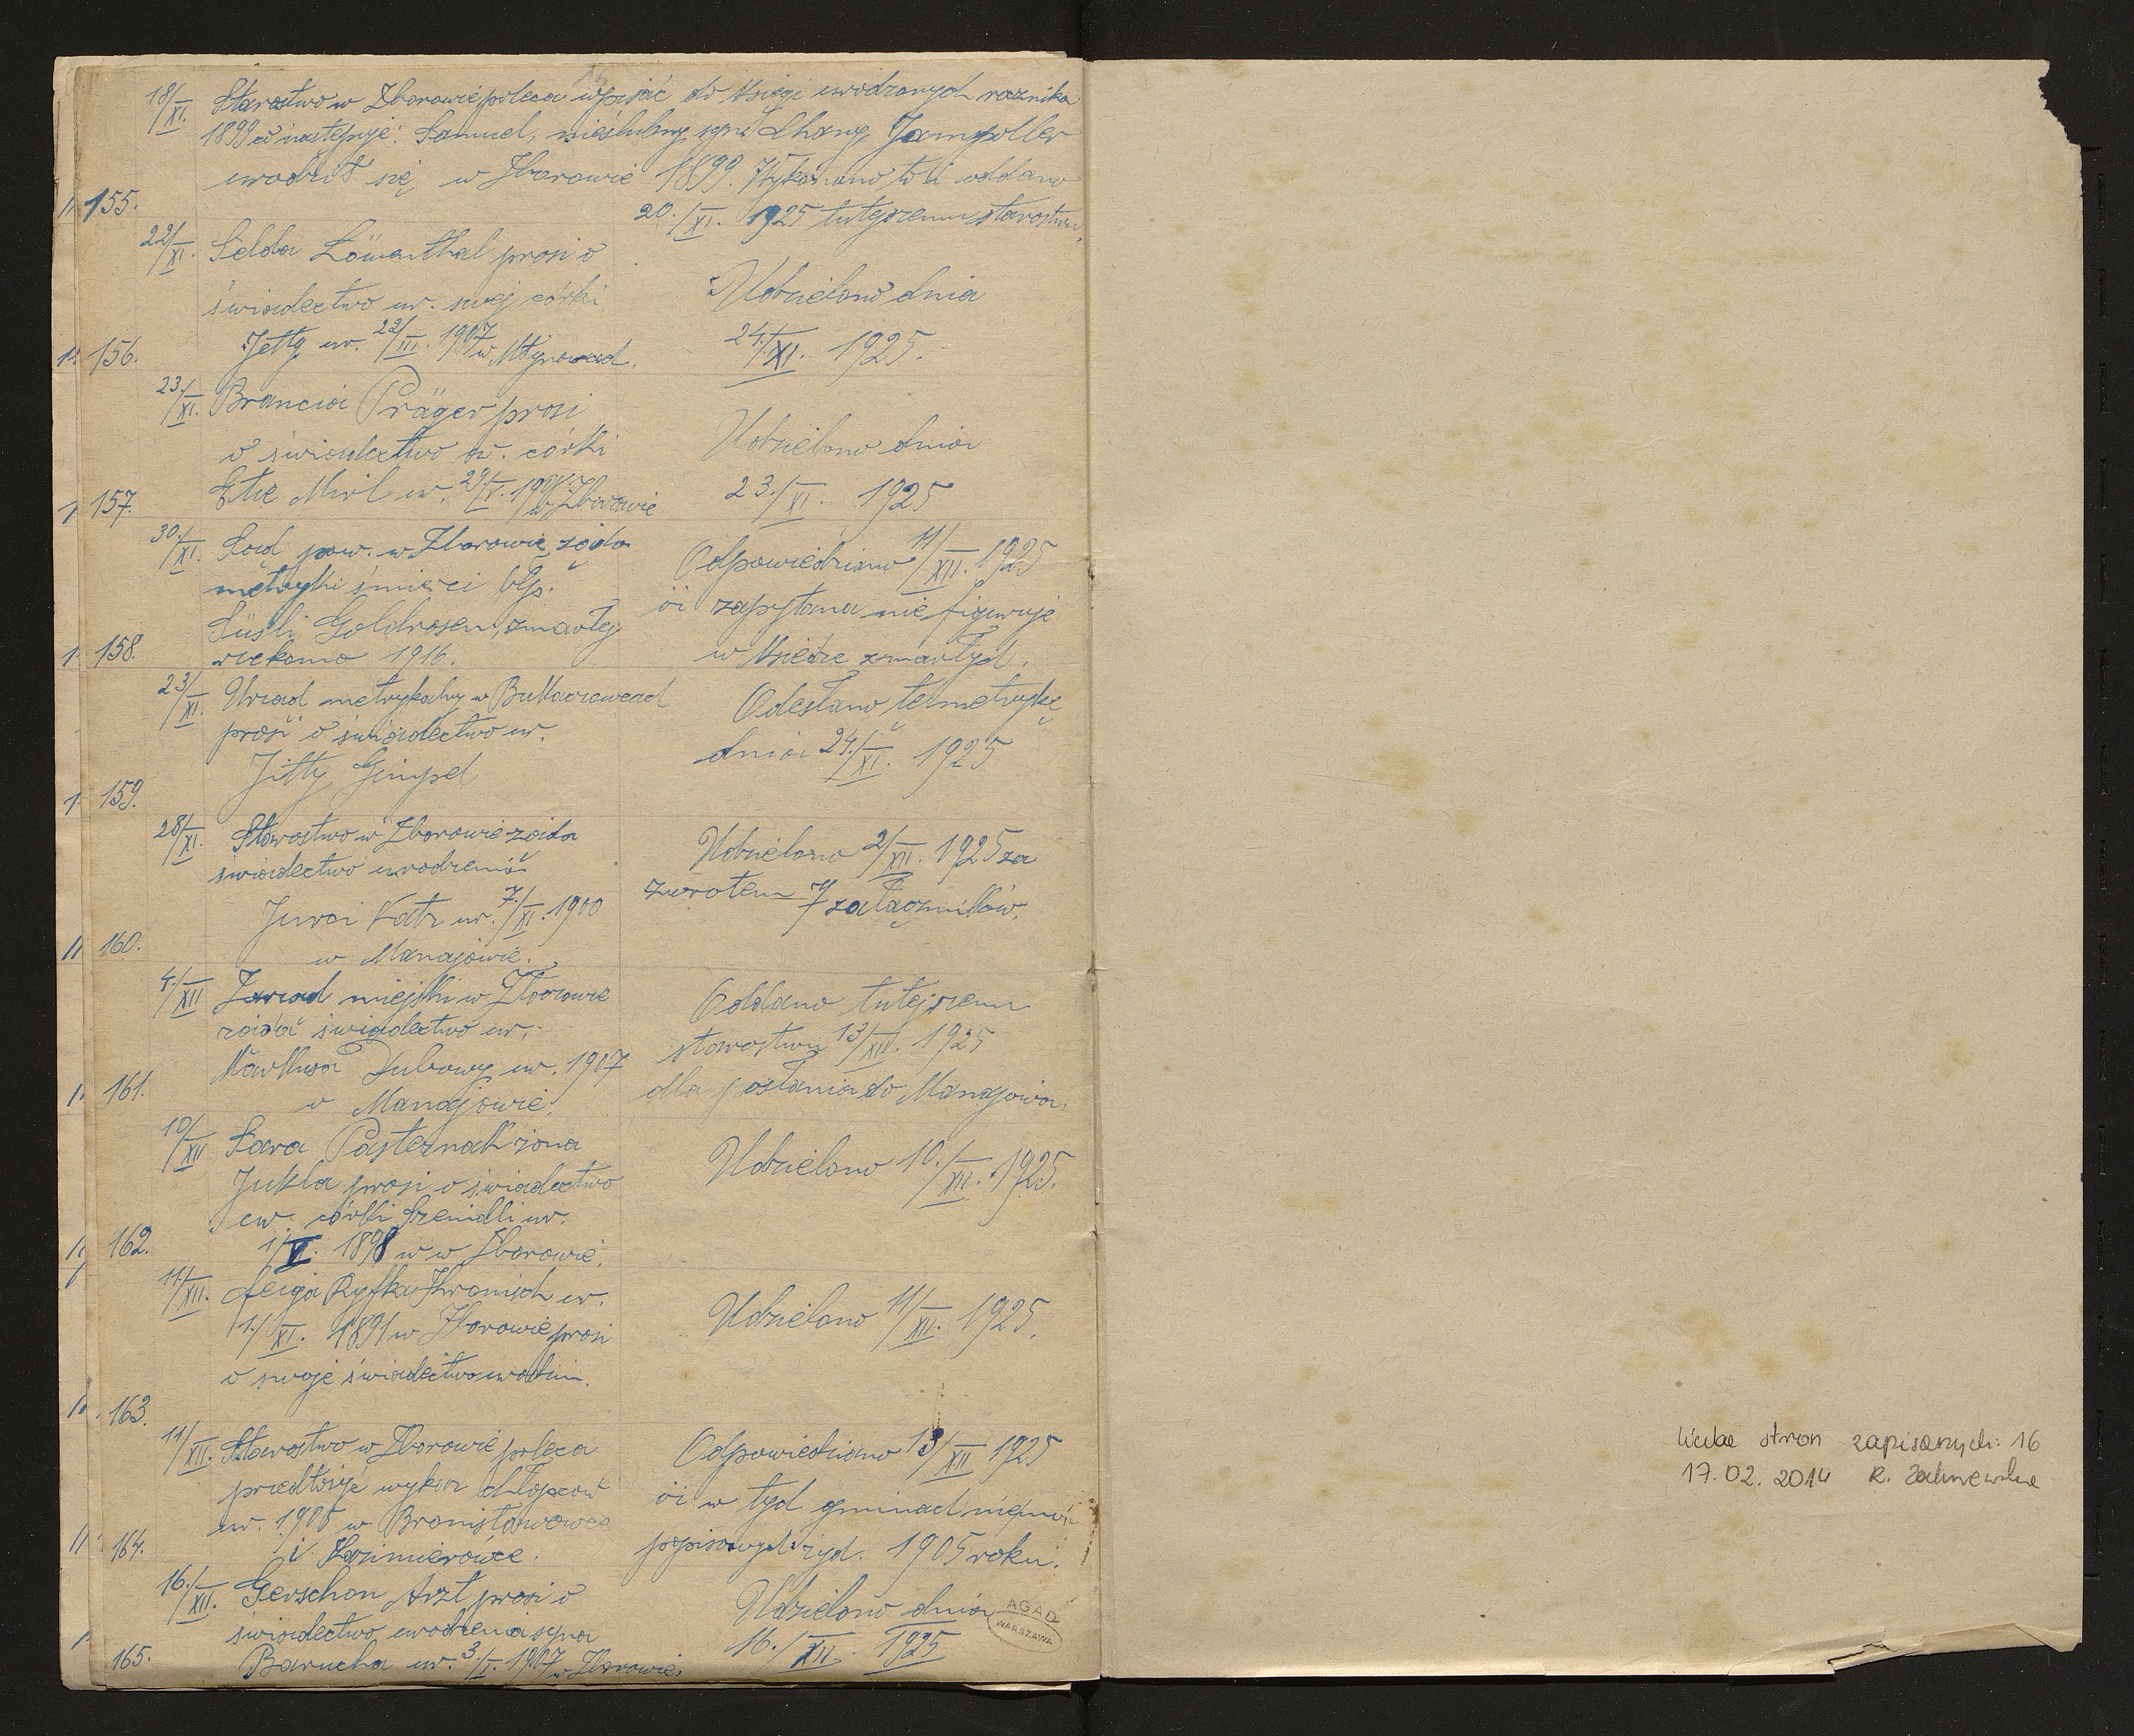 18/XI. Starostwo w Zborowie poleca wpisać do księgi urodzonych rocznika
1899 co następuje: Samuel, nieślubny syn Chany Jampoller
urodził się w Zborowie 1899. Wykonano to i oddano
155. 20./XI. 1925 tutejszemu starostwu.
22/XI. Selda Löwenthal prosi o
świadectwo ur. swej córki
Udzielono dnia
156. Jetty ur. 22/III. 1907 w Młynowcach.
24./XI. 1925.
23./XI. Brancia Präger prosi
o świadectwo ur. córki
Udzielono dnia
157. Etie Mirl ur. 29./V. w Zborowie
23./XI. 1925
30./XI. Sąd pow. w Zborowie żąda
metryki śmierci
Süsli Goldrosen, zmarłej
158. rzekomo 1916.
Odpowiedziano 11/XII. 1925
iż zapytana nie figuruje
w księdze zmarłych.
23/XI. Urząd metrykalny w
prosi o świadectwo ur.
159. Jitty Gimpel
Odesłano tę metrykę
dnia 24./XI. 1925
28/XI. Starostwo w Zborowie żąda
świadectwo urodzenia
Katz ur. 7./XI. 1900
160. w Manajowie.
Udzielono 2/XII. 1925 za
zwrotem 7 załączników.
4./XII Zarząd miejski w Zborowie
żąda świadectwo ur.
Dubowy ur. 1907
161. w Manajowie.
Oddano tutejszemu
starostwu 13/XII. 1925
dla posłania do Manajowa.
10/XII Sara Pasternak żona
Jukla prosi o świadectwo
ur. córki Szeindli ur.
162. 1/V. 1898 w w Zborowie.
Udzielono 10./XII. 1925.
11/XII. Feiga Ryfka ur.
1./XI. 1891 w Zborowie prosi
o swoje świadectwo urodzin.
163.
Udzielono 11/XII. 1925.
11/XII. Starostwo w Zborowie poleca
przedłożyć wykaz chłopców
ur. 1905 w Bronisławówce
164. i Kazimierówce.
Odpowiedziano 13/XII 1925
iż w tych gminach niema
popisowych żyd. 1905 roku.
16./XII. Gerschon Arzt prosi o
świadectwo urodzenia syna
165. Barucha ur. 3./I. 1907 w Zborowie.
Udzielono dnia
16./XII. 1925
AGAD
WARSZAWA
liczba stron zapisanych: 16
17.02.2014 R.